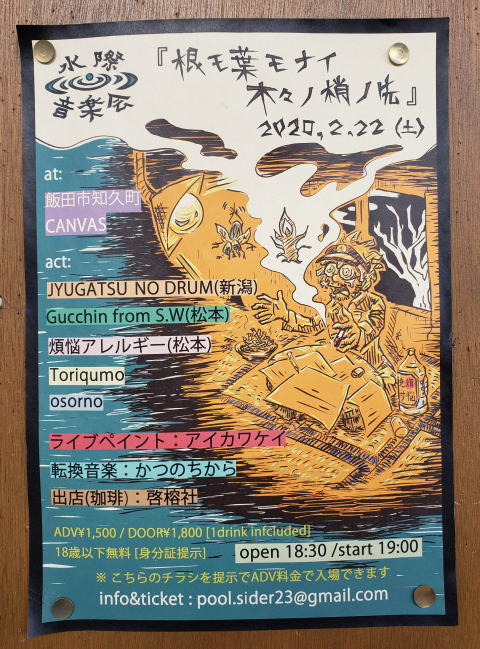 水際
音楽会
『根モ葉モナイ
木々ノ梢ノ先』
2020,2.22(土)
at:
飯田市知久町
CANVAS
act:
JYUGATSU NO DRUM(新潟)
Gucchin from S.W(松本)
煩悩アレルギー(松本)
Toriqumo
osorno
ライブペイント：アイカワケイ
転換音楽：かつのちから
出店(珈琲)：啓榕社
ADV¥1,500 / DOOR¥1,800 [1drink infcluded]
18歳以下無料 [身分証提示]
open 18:30 /start 19:00
※ こちらのチラシを提示でADV料金で入場できます
info&ticket : pool.sider23@gmail.com